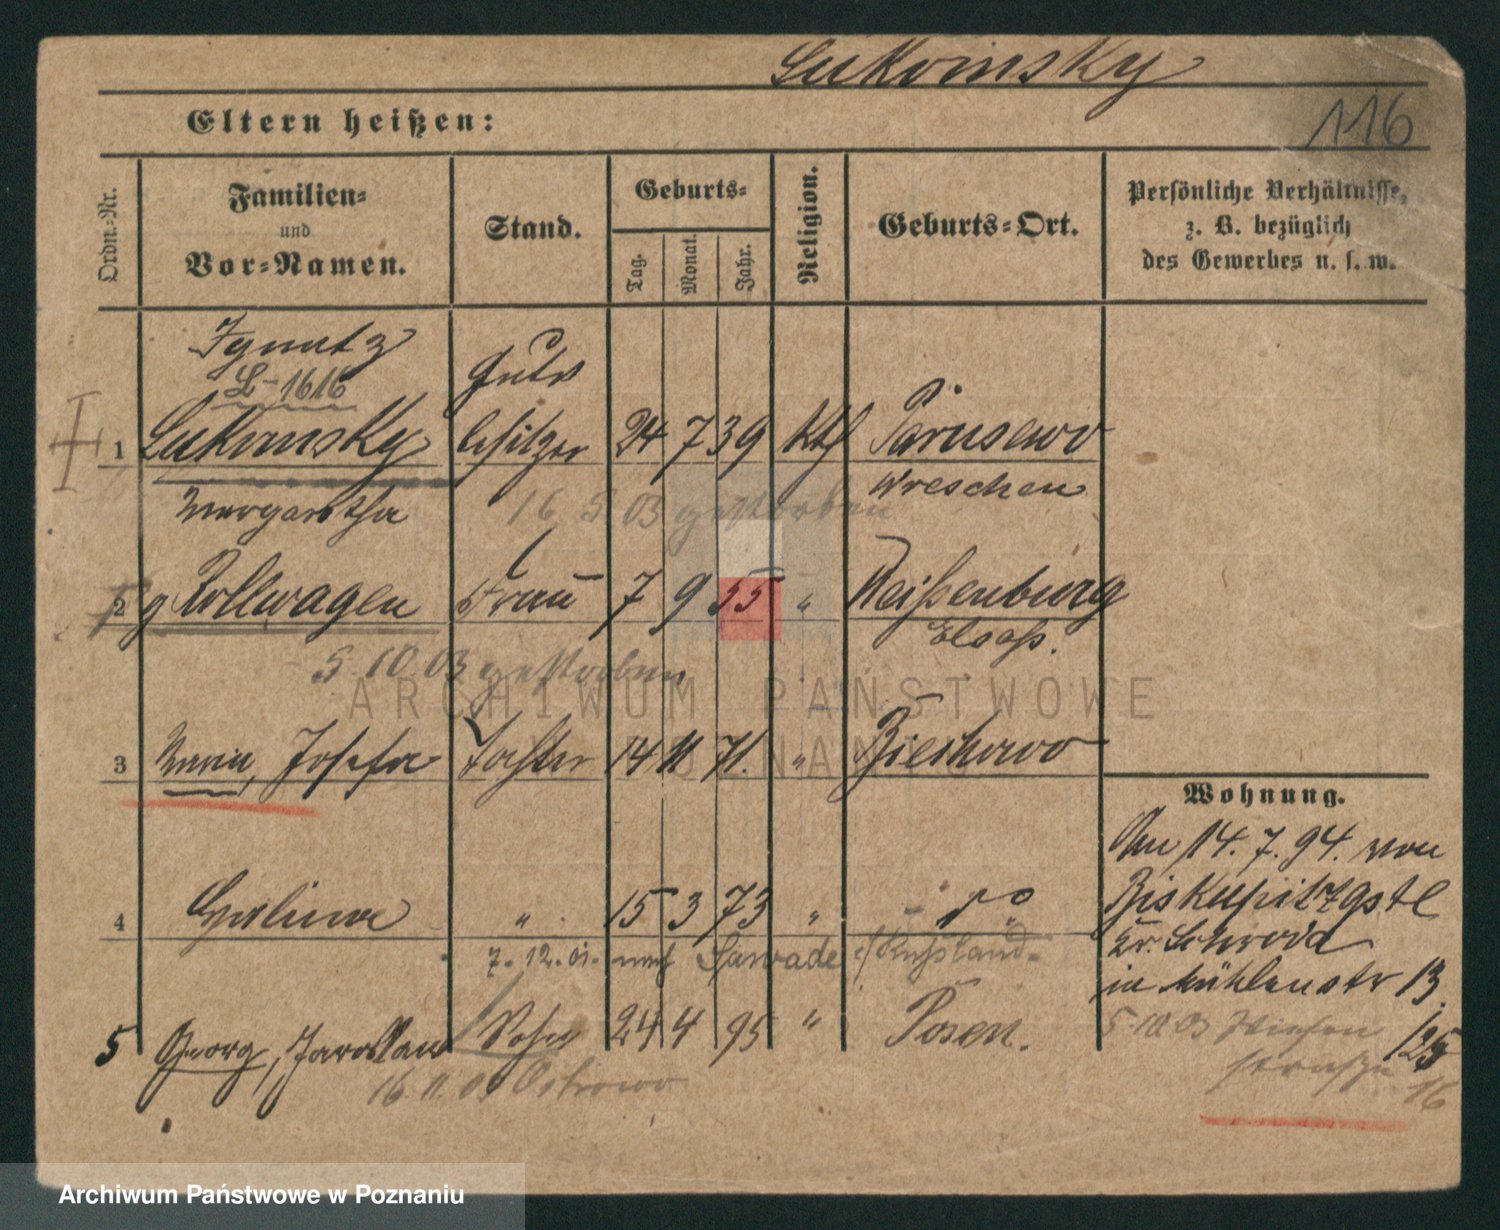 Lukomsky
116
Eltern heißen:
Ordn.-Nr.
Familien- und Vor-Namen.
Stand.
Geburts-
Tag.
Monat.
Jahr.
Religion.
Geburts-Ort.
Persönliche Verhältnisse, z. B. bezüglich des Gewerbes u. s. w.
Ignatz
L-1616
Guts
1 Lukomsky besitzer 24 7 39 kth Parusewo
Wreschen
Margaretha
16 5 03 gestorben
2 g Rollwagen Frau 7 9 55 " Weißenburg
Elsaß.
5 10 03 gestorben
3 Maria, Josefa Tochter 14 11 71. " Biechowo
Wohnung.
Am 14. 7. 94. von
4 Halina " 15 3 73 "
Biskupitz
Kr. Schroda
7. 12. 01. nach
in Mühlenstr 13.
5 Georg, Jaroslaw Sohn 24 4 95 " Posen.
5 10 03 125
16. 11. 03 Ostrowo
16
ARCHIWUM PAŃSTWOWE
W POZNANIU
Archiwum Państwowe w Poznaniu